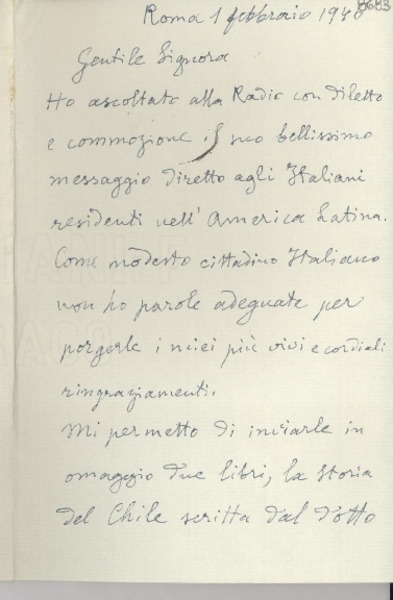 8683
Roma 1 febbraio 1946
Gentile Signora
Ho ascoltato alla Radio con diletto
e commozione il suo bellissimo
messaggio diretto agli Italiani
residenti nell' America Latina.
Come modesto cittadino Italiano
non ho parole adeguate per
porgerle i miei più vivi e cordiali
ringraziamenti.
Mi permetto di inviarle in
omaggio due libri, la Storia
del Chile scritta dal dotto